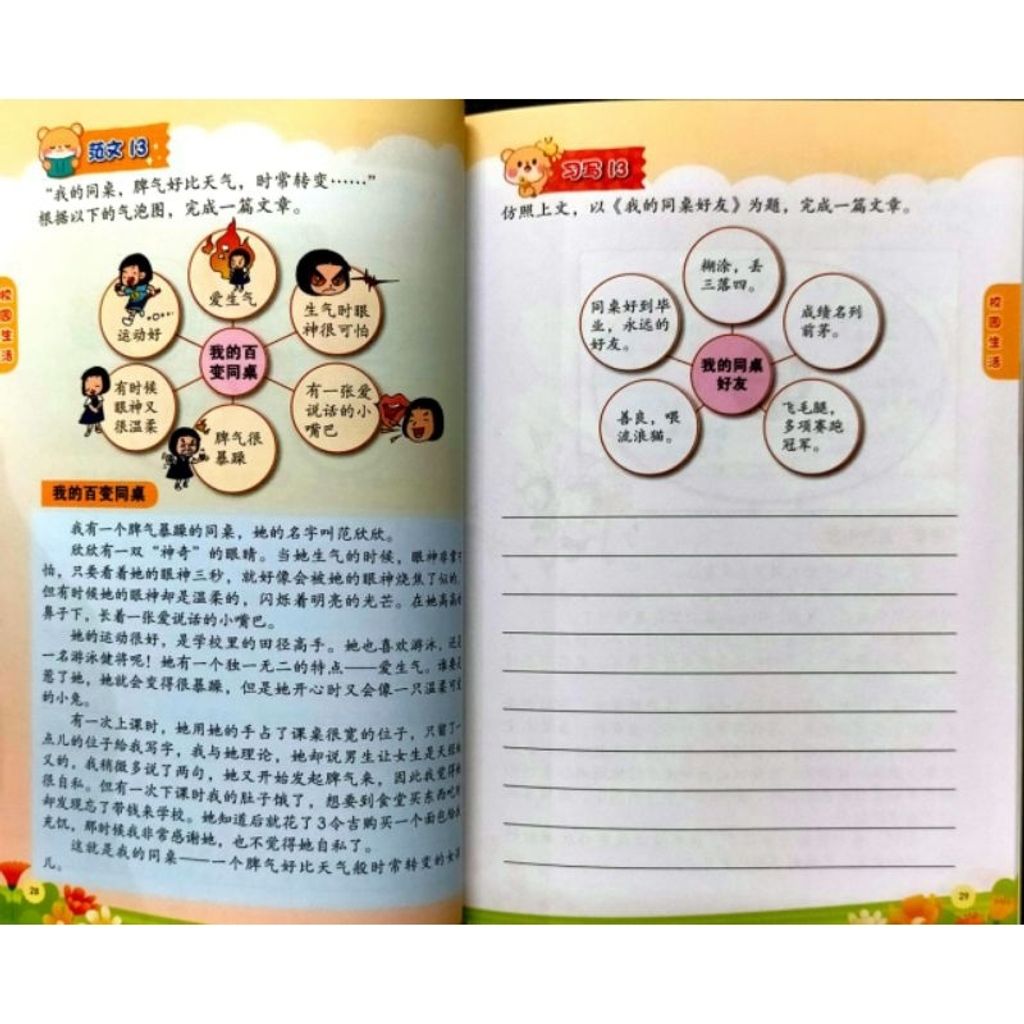 范文 13
“我的同桌，脾气好比天气，时常转变……”
根据以下的气泡图，完成一篇文章。
爱生气
运动好
生气时眼
神很可怕
我的百
变同桌
有时候
眼神又
很温柔
有一张爱
说话的小
嘴巴
脾气很
暴躁
校园生活
我的百变同桌
我有一个脾气暴躁的同桌，她的名字叫范欣欣。
欣欣有一双“神奇”的眼睛。当她生气的时候，眼神非常可
怕，只要看着她的眼神三秒，就好像会被她的眼神烧焦了似的，
但有时候她的眼神却是温柔的，闪烁着明亮的光芒。在她高高的
鼻子下，长着一张爱说话的小嘴巴。
她的运动很好，是学校里的田径高手。她也喜欢游泳，还是
一名游泳健将呢！她有一个独一无二的特点——爱生气。谁要是
惹了她，她就会变得很暴躁，但是她开心时又会像一只温柔可爱
的小兔。
有一次上课时，她用她的手占了课桌很宽的位子，只留了一
点儿的位子给我写字，我与她理论，她却说男生让女生是天经地
义的，我稍微多说了两句，她又开始发起脾气来，因此我觉得她
很自私。但有一次下课时我的肚子饿了，想要到食堂买东西吃时
却发现忘了带钱来学校。她知道后就花了3令吉购买一个面包给我
充饥，那时候我非常感谢她，也不觉得她自私了。
这就是我的同桌——一个脾气好比天气般时常转变的女孩
儿。
28
习写 13
仿照上文，以《我的同桌好友》为题，完成一篇文章。
糊涂，丢
三落四。
同桌好到毕
业，永远的
好友。
成绩名列
前茅。
我的同桌
好友
善良，喂
流浪猫。
飞毛腿，
多项赛跑
冠军。
校园生活
29